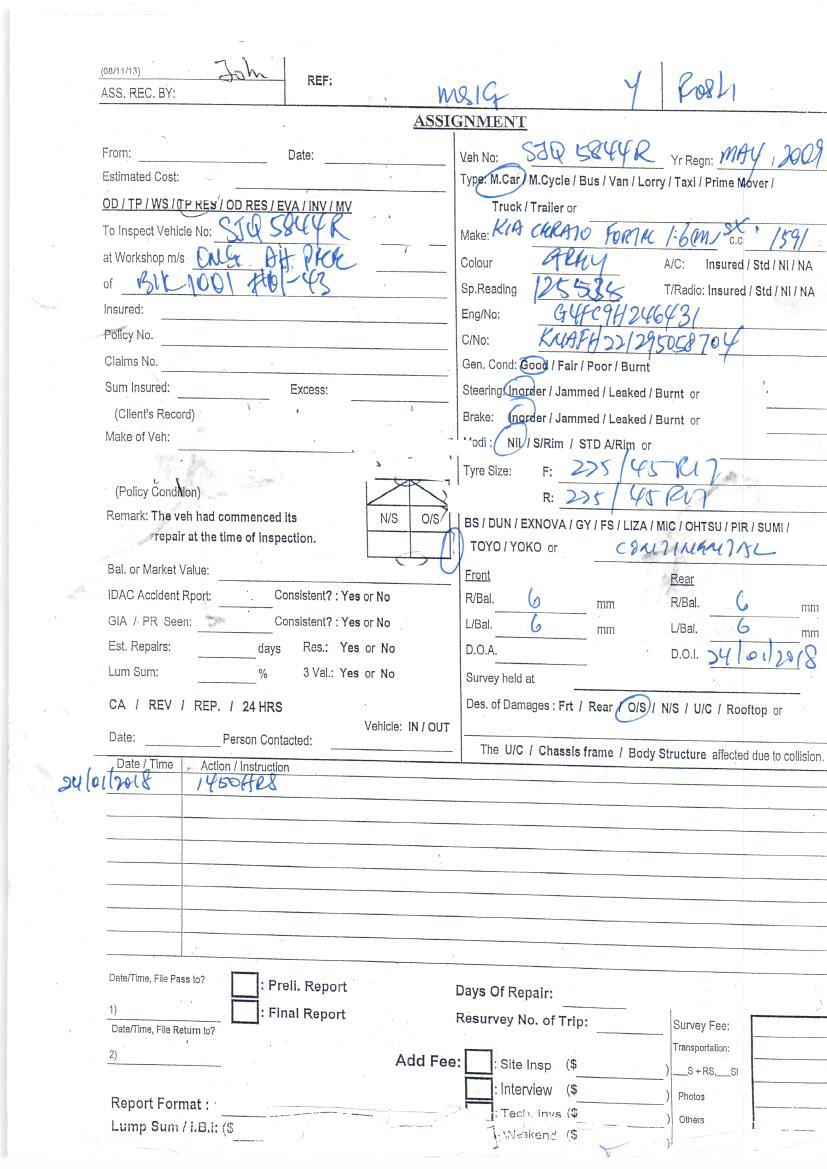 (08/11/13) John
ASS. REC. BY:
REF:
MSIG Y Rosli
ASSIGNMENT
From: Date:
Estimated Cost:
OD / TP / WS / TP RES / OD RES / EVA / INV / MV
To Inspect Vehicle No: SJQ 5844R
at Workshop m/s ONG AH
of Blk 1001 #01-43
Insured:
Policy No.
Claims No.
Sum Insured: Excess:
(Client's Record)
Make of Veh:
(Policy Condition)
N/S O/S
Remark: The veh had commenced its
repair at the time of inspection.
Bal. or Market Value:
IDAC Accident Rport: Consistent? : Yes or No
GIA / PR Seen: Consistent? : Yes or No
Est. Repairs: days Res.: Yes or No
Lum Sum: % 3 Val.: Yes or No
CA / REV / REP. / 24 HRS
Vehicle: IN / OUT
Date: Person Contacted:
Veh No: SJQ 5844R Yr Regn: MAY / 2009
Type: M.Car / M.Cycle / Bus / Van / Lorry / Taxi / Prime Mover /
Truck / Trailer or
Make: KIA CERATO FORTE 1.6 C.C 1591
Colour A/C: Insured / Std / NI / NA
Sp.Reading 125535 T/Radio: Insured / Std / NI / NA
Eng/No: G4FC9H246431
C/No: KNAFH221295058704
Gen. Cond: Good / Fair / Poor / Burnt
Steering: Inorder / Jammed / Leaked / Burnt or
Brake: Inorder / Jammed / Leaked / Burnt or
Modi : Nil / S/Rim / STD A/Rim or
Tyre Size: F: 225 / 45 R17
R: 225 / 45 R17
BS / DUN / EXNOVA / GY / FS / LIZA / MIC / OHTSU / PIR / SUMI /
TOYO / YOKO or CONTINENTAL
Front Rear
R/Bal. 6 mm R/Bal. 6 mm
L/Bal. 6 mm L/Bal. 6 mm
D.O.A. D.O.I. 24/01/2018
Survey held at
Des. of Damages : Frt / Rear / O/S / N/S / U/C / Rooftop or
The U/C / Chassis frame / Body Structure affected due to collision.
Date / Time Action / Instruction
24/01/2018 1450HRS
Date/Time, File Pass to?
1)
Date/Time, File Return to?
2)
: Preli. Report
: Final Report
Days Of Repair:
Resurvey No. of Trip:
Add Fee: : Site Insp ($ )
: Interview ($ )
: Tech. Invs ($ )
: Weekend ($
Survey Fee:
Transportation:
__S + RS,__SI
Photos
Others
Report Format :
Lump Sum / I.B.I: ($